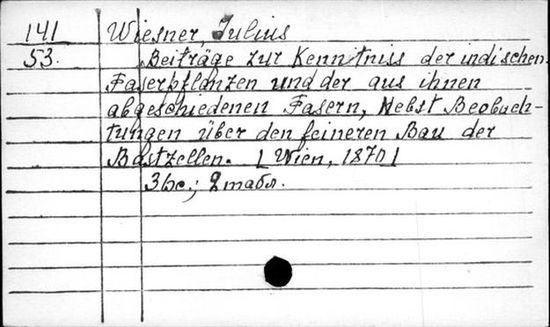 141 Wiesner Julius
53. Beiträge zur Kenntniss der indischen
Faserpflanzen und der aus ihnen
abgeschiedenen Fasern, Nebst Beobach-
tungen über den feineren Bau der
Bastzellen. [Wien, 1870]
2 табл.